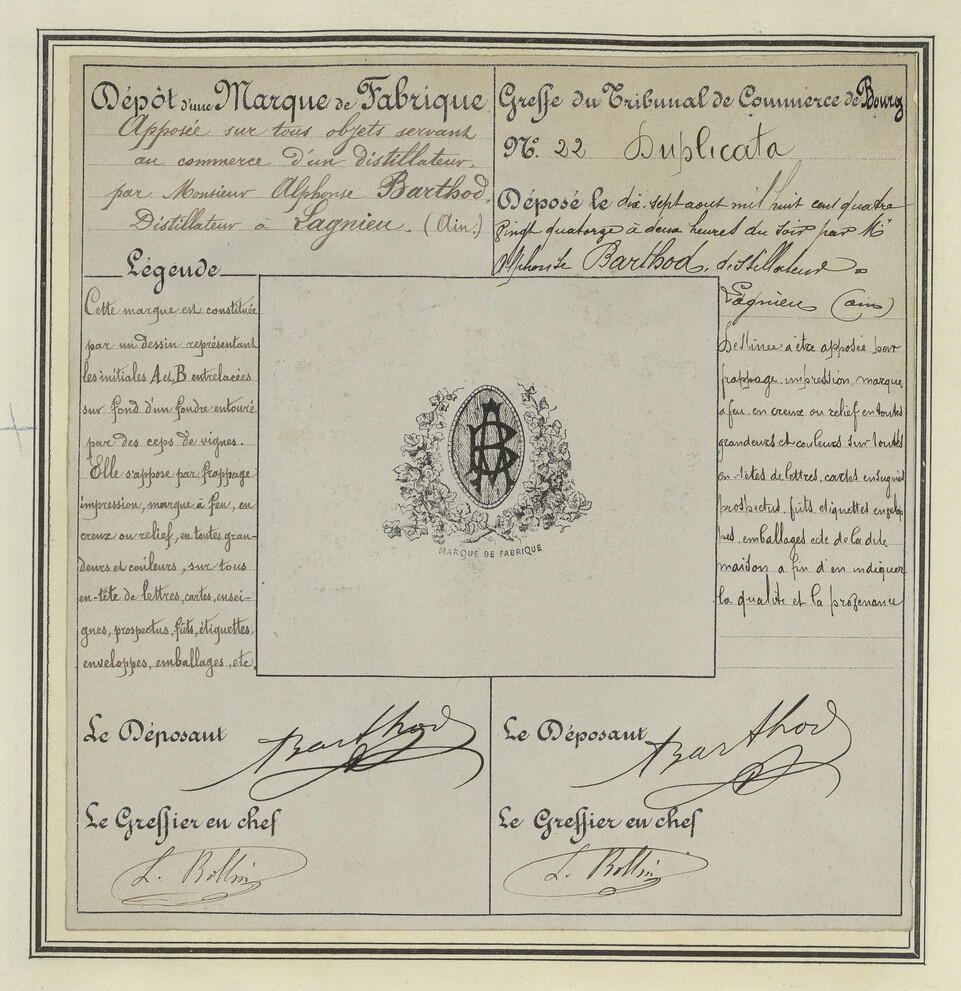 Dépôt d'une Marque de Fabrique
Apposée sur tous objets servant
au commerce d'un distillateur,
par Monsieur Alphonse Barthod,
Distillateur à Lagnieu. (Ain.)
Légende
Cette marque est constituée
par un dessin représentant
les initiales A et B entrelacées
sur fond d'un foudre entouré
par des ceps de vignes.
Elle s'appose par frappage
impression, marque à feu, en
creux ou relief, en toutes gran-
deurs et couleurs, sur tous
en-tête de lettres, cartes, ensei-
gnes, prospectus, fûts, étiquettes,
enveloppes, emballages, etc.
Greffe du Tribunal de Commerce de Bourg
N° 22 Duplicata
Déposé le dix-sept aout mil huit cent quatre
vingt quatorze à deux heures du soir par Mr
Alphonse Barthod, distillateur à
Lagnieu (ain)
Destinée a être apposée par
frappage, impression, marque
a feu, en creux ou relief en toutes
grandeurs et couleurs sur toutes
en-têtes de lettres, cartes enseignes
prospectus, fûts, etiquettes envelop
pes, emballages ect de la dite
maison a fin d'en indiquer
la qualité et la provenance
AB
MARQUE DE FABRIQUE
Le Déposant Barthod
Le Greffier en chef
L. Rollin
Le Déposant Barthod
Le Greffier en chef
L. Rollin